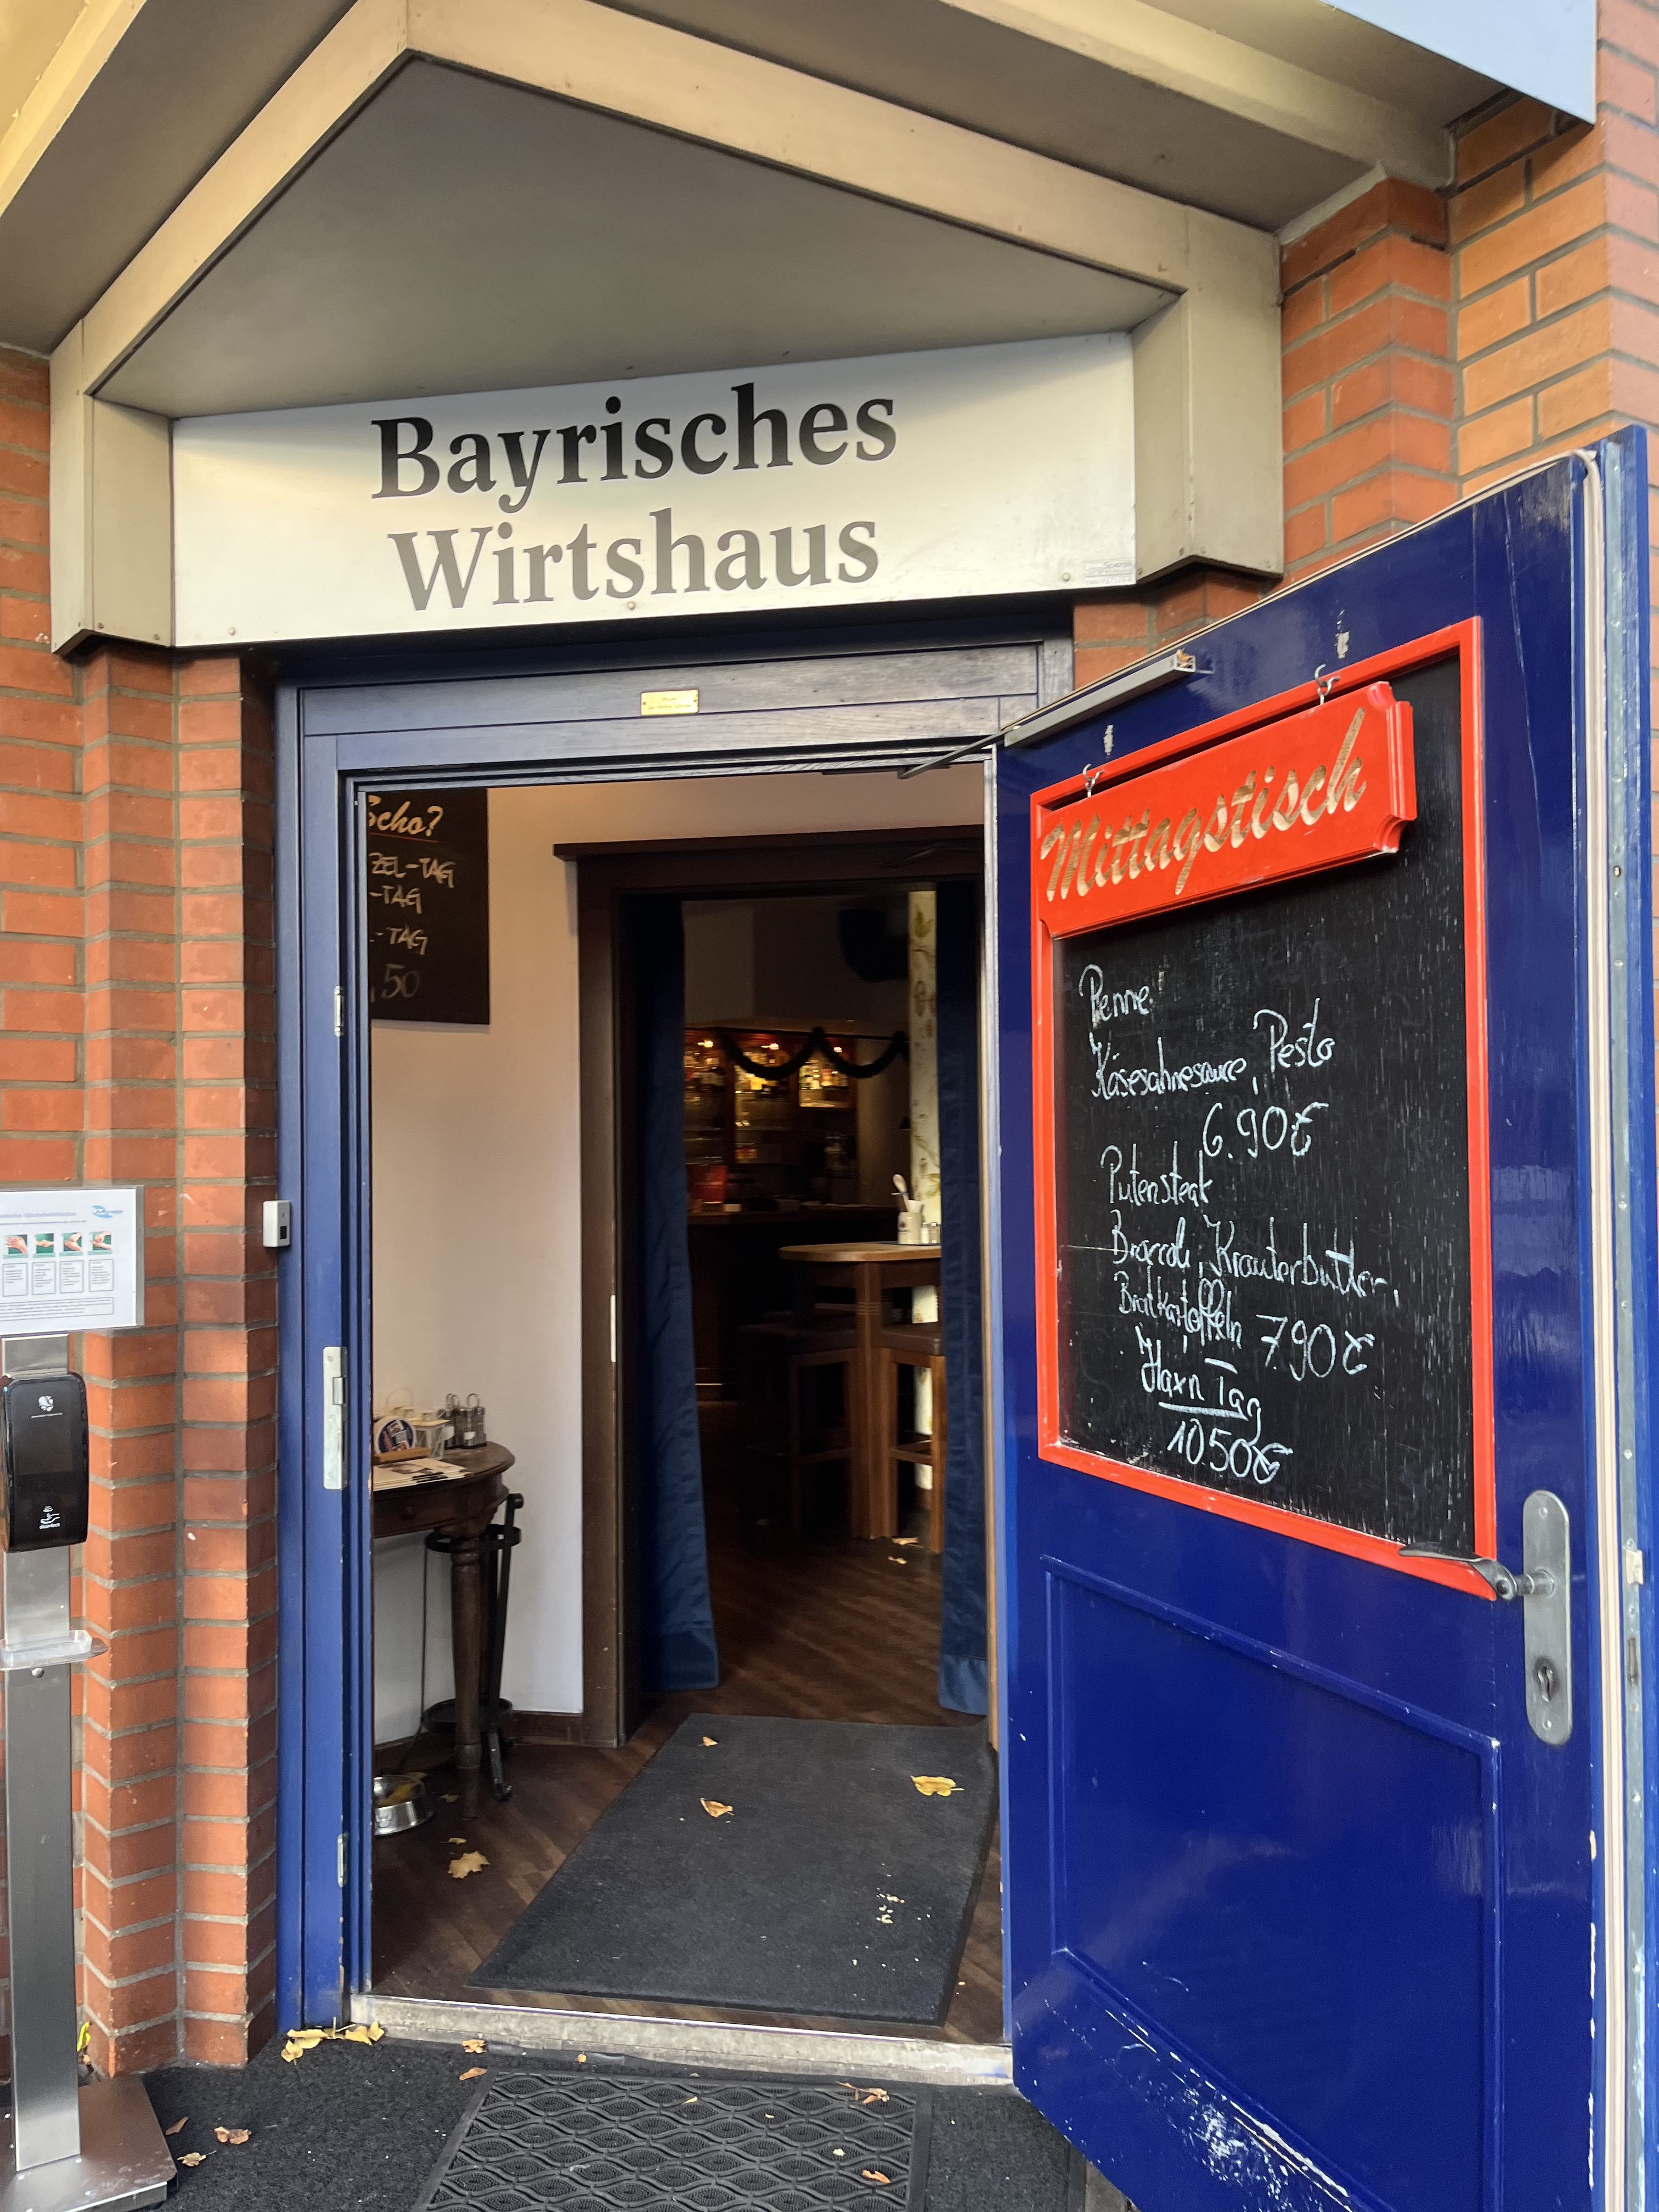 Bayrisches
Wirtshaus
Scho?
ZEL-TAG
-TAG
-TAG
,50
Mittagstisch
Penne
Käsesahnesauce, Pesto
6.90€
Putensteak
Broccoli, Kräuterbutter,
Bratkartoffeln 7.90€
Haxn Tag
10.50€